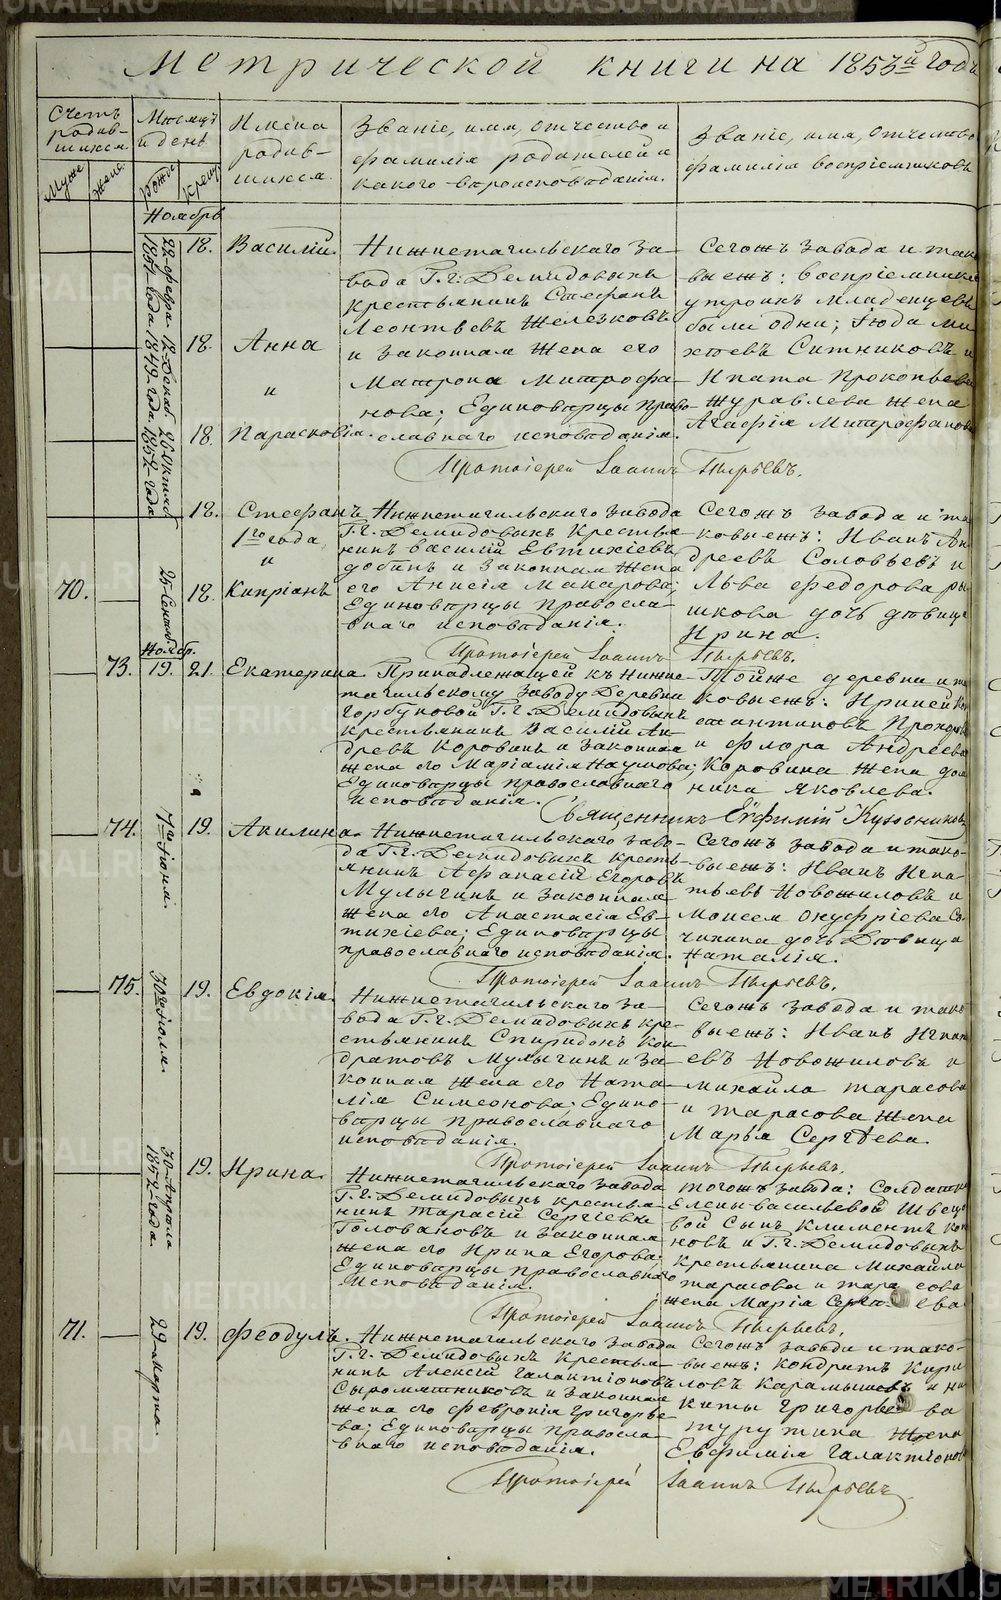 Метрической книги на 1853й годъ
Счетъ родив-
шихся.
Муже
Жене.
Месяцъ
и день
Рожд.
Крещ.
Имена
родив-
шихся.
Званіе, имя, отчество и
фамилія родителей и
какого вероисповѣданія.
Званіе, имя, отчество
фамилія воспріемниковъ
Ноябрь
22 февра. 1851 года
18. Василій.
Нижнетагильскаго за-
вода Г.г. Демидовыхъ
крестьянинъ Стефанъ
Леонтьевъ Железковъ
и законная жена его
Матрона Митрофа-
нова; Единоверцы право-
славнаго исповѣданія.
Сегожъ завода и так
выежъ: воспріемник
у троихъ младенцевъ
были одни; Іюда Ми
хѣевъ Ситниковъ и
Ипата Прокопьева
Журавлева жена
Агафія Митрофанова
18 Декаб. 1849 года
18. Анна
и
26 Октяб. 1852 года
18. Парасковія.
Протоіерей Іоаннъ Пырьевъ.
18. Стефанъ
1го года
и
70.
25 Сентяб.
18. Кипріанъ
Нижнетагильскаго завода
Г.г. Демидовыхъ крестья
нинъ Василій Евтихіевъ
его Анисія Макарова;
Единоверцы правосла-
внаго исповѣданія.
Сегожъ завода и та
ковыежъ: Иванъ Ан
дреевъ Соловьевъ и
Льва Федорова ры
шкова дочь девица
Ирина.
Протоіерей Іоаннъ Пырьевъ.
Ноябр.
73. 19. 21. Екатерина.
Принадлежащей къ Нижне-
тагильскому заводу деревни
Горбуновой Г.г. Демидовыхъ
крестьянинъ Василій Ан-
древъ Коровинъ и законная
жена его Маріамія Наумова;
Единоверцы православнаго
исповѣданія.
Тойже деревни и та
ковыежъ: Ириней Кон
стантиновъ Прохоровъ
и Флора Андреева
Коровина жена дом
ника Яковлева.
Священникъ Евфимій Кузовниковъ
74. 7го Іюня. 19. Акилина.
Нижнетагильскаго заво-
да Г.г. Демидовыхъ кресть-
янинъ Афанасій Егоровъ
Мулычинъ и законная
жена его Анастасія Ев-
тихіева; Единоверцы
православнаго исповѣданія.
Сегожъ завода и тако-
выежъ: Иванъ Игна-
тьевъ Новожиловъ и
Моисея Онуфріева Со
чихина дочь Девица
Наталія.
Протоіерей Іоаннъ Пырьевъ.
75. 30го Іюля 19. Евдокія.
Нижнетагильскаго за-
вода Г.г. Демидовыхъ кре-
стьянинъ Спиридонъ Кон
дратовъ Мулычинъ и за-
конная жена его Ната-
лія Симеонова; Едино-
верцы православнаго
исповѣданія.
Сегожъ завода и тако
выежъ: Иванъ Игнать
евъ Новожиловъ и
Михаила Тарасова
и Тарасова жена
Марья Сергѣева.
Протоіерей Іоаннъ Пырьевъ.
30 Апрѣля 1852 года.
19. Ирина.
Нижнетагильскаго завода
Г.г. Демидовыхъ крестья-
нинъ Тарасій Сергіевъ
Головановъ и законная
жена его Ирина Егорова;
Единоверцы православнаго
исповѣданія.
Тогожъ завода: Солдатки
Елены Васильевой Швецо
вой сынъ Климентъ Ко
новъ и Г.г. Демидовыхъ
крестьянина Михаила
Тарасова и Тарасова
жена Марія Сергеева
Протоіерей Іоаннъ Пырьевъ.
71. 29 Марта. 19. Феодулъ.
Нижнетагильскаго завода
Г.г. Демидовыхъ Крестья-
нинъ Алексій Галактіоновъ
Сыромятниковъ и законная
жена его Февронія Григорье-
ва; Единоверцы правосла-
внаго исповѣданія.
Сегожъ завода и тако-
выежъ: Кондратъ Кири
ловъ Карамышевъ и Ни
киты Григорьева
Туружина жена
Евфимія Галактіонов
Протоіерей Іоаннъ Пырьевъ
METRIKI.GASO-URAL.RU